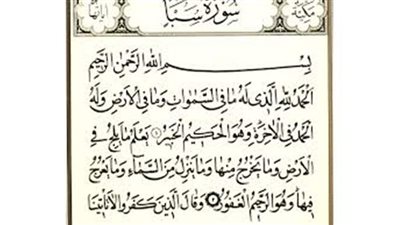 سُورَةُ سَبَأ
مَكِّيَّة
بِسْمِ اللَّهِ الرَّحْمَٰنِ الرَّحِيمِ
الْحَمْدُ لِلَّهِ الَّذِي لَهُ مَا فِي السَّمَوَاتِ وَمَا فِي الْأَرْضِ وَلَهُ
الْحَمْدُ فِي الْآخِرَةِ وَهُوَ الْحَكِيمُ الْخَبِيرُ ١ يَعْلَمُ مَا يَلِجُ فِي
الْأَرْضِ وَمَا يَخْرُجُ مِنْهَا وَمَا يَنْزِلُ مِنَ السَّمَاءِ وَمَا يَعْرُجُ
فِيهَا وَهُوَ الرَّحِيمُ الْغَفُورُ ٢ وَقَالَ الَّذِينَ كَفَرُوا لَا تَأْتِينَا